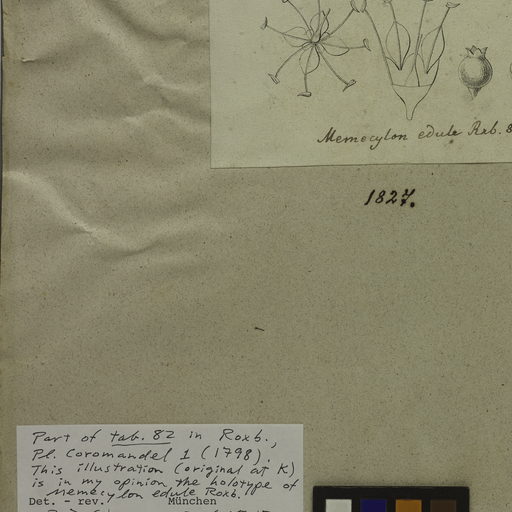 Memecylon edule Rxb.
1827.
Part of tab. 82 in Roxb.,
Pl. Coromandel 1 (1798).
This illustration (original at K)
is in my opinion the holotype of
Memecylon edule Roxb.
Det. - rev. München